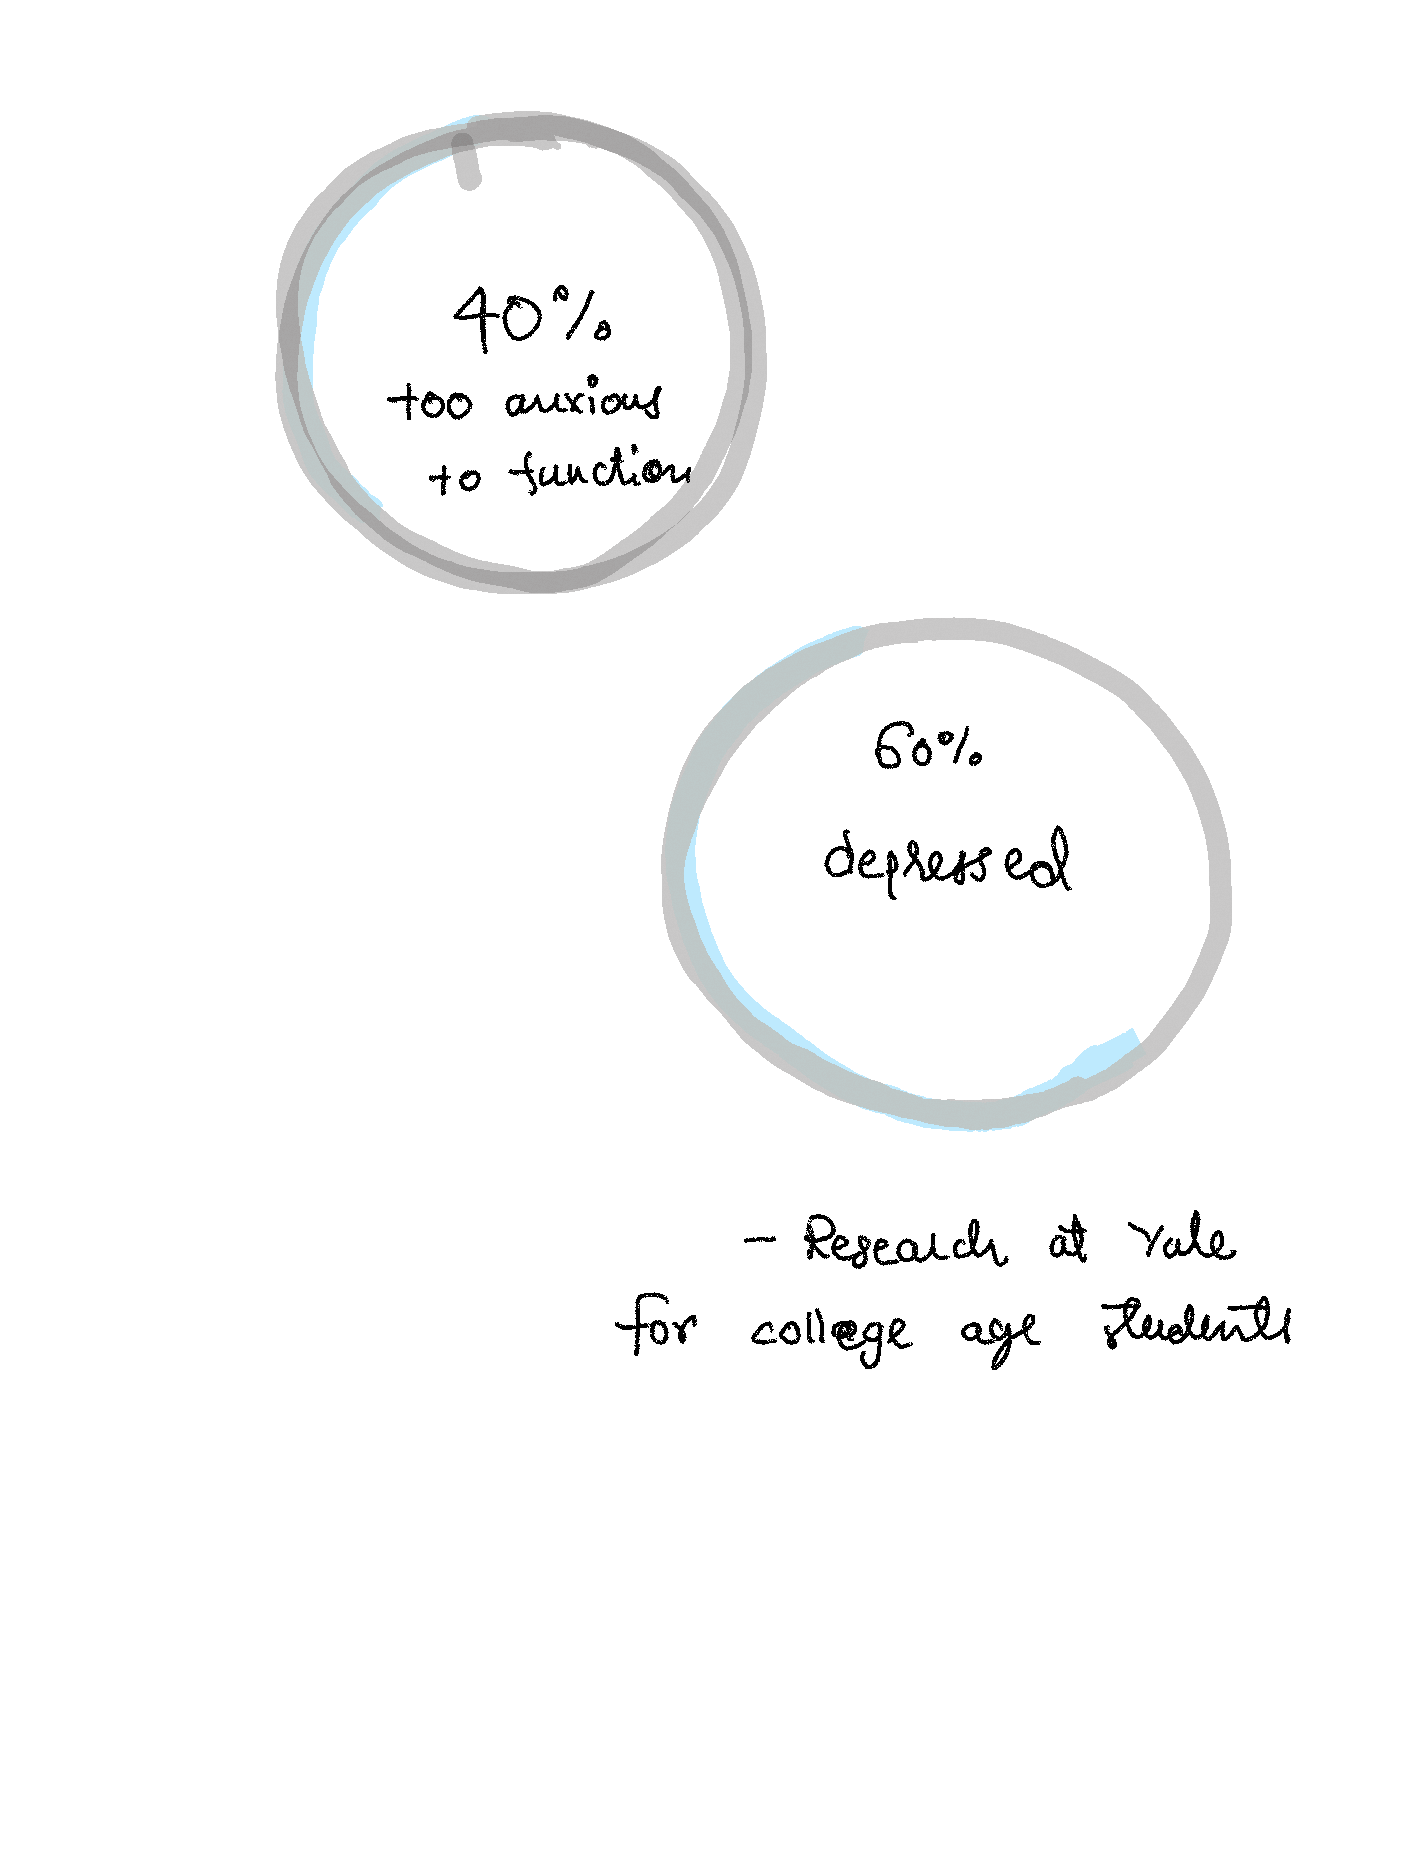 40%
too anxious
to function
60%
depressed
- Research at Yale
for college age students